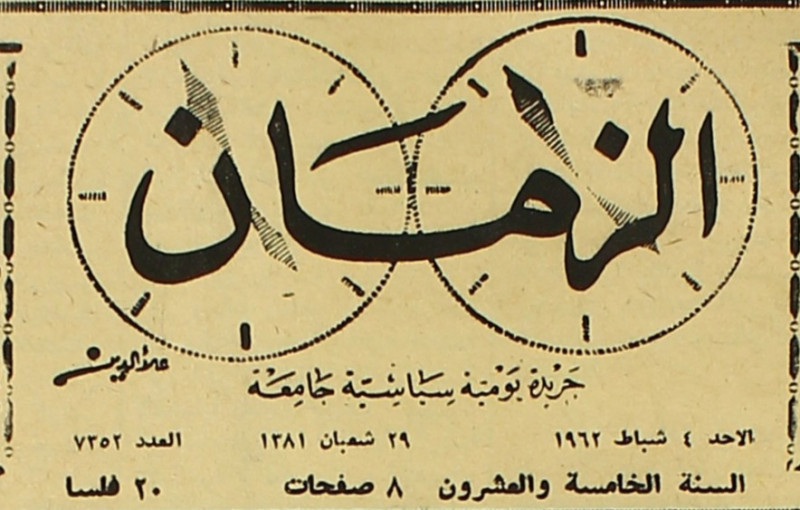 الزمان
علاء الدين
جريدة يومية سياسية جامعة
الاحد ٤ شباط ١٩٦٢ ٢٩ شعبان ١٣٨١ العدد ٧٣٥٢
السنة الخامسة والعشرون ٨ صفحات ٢٠ فلسا